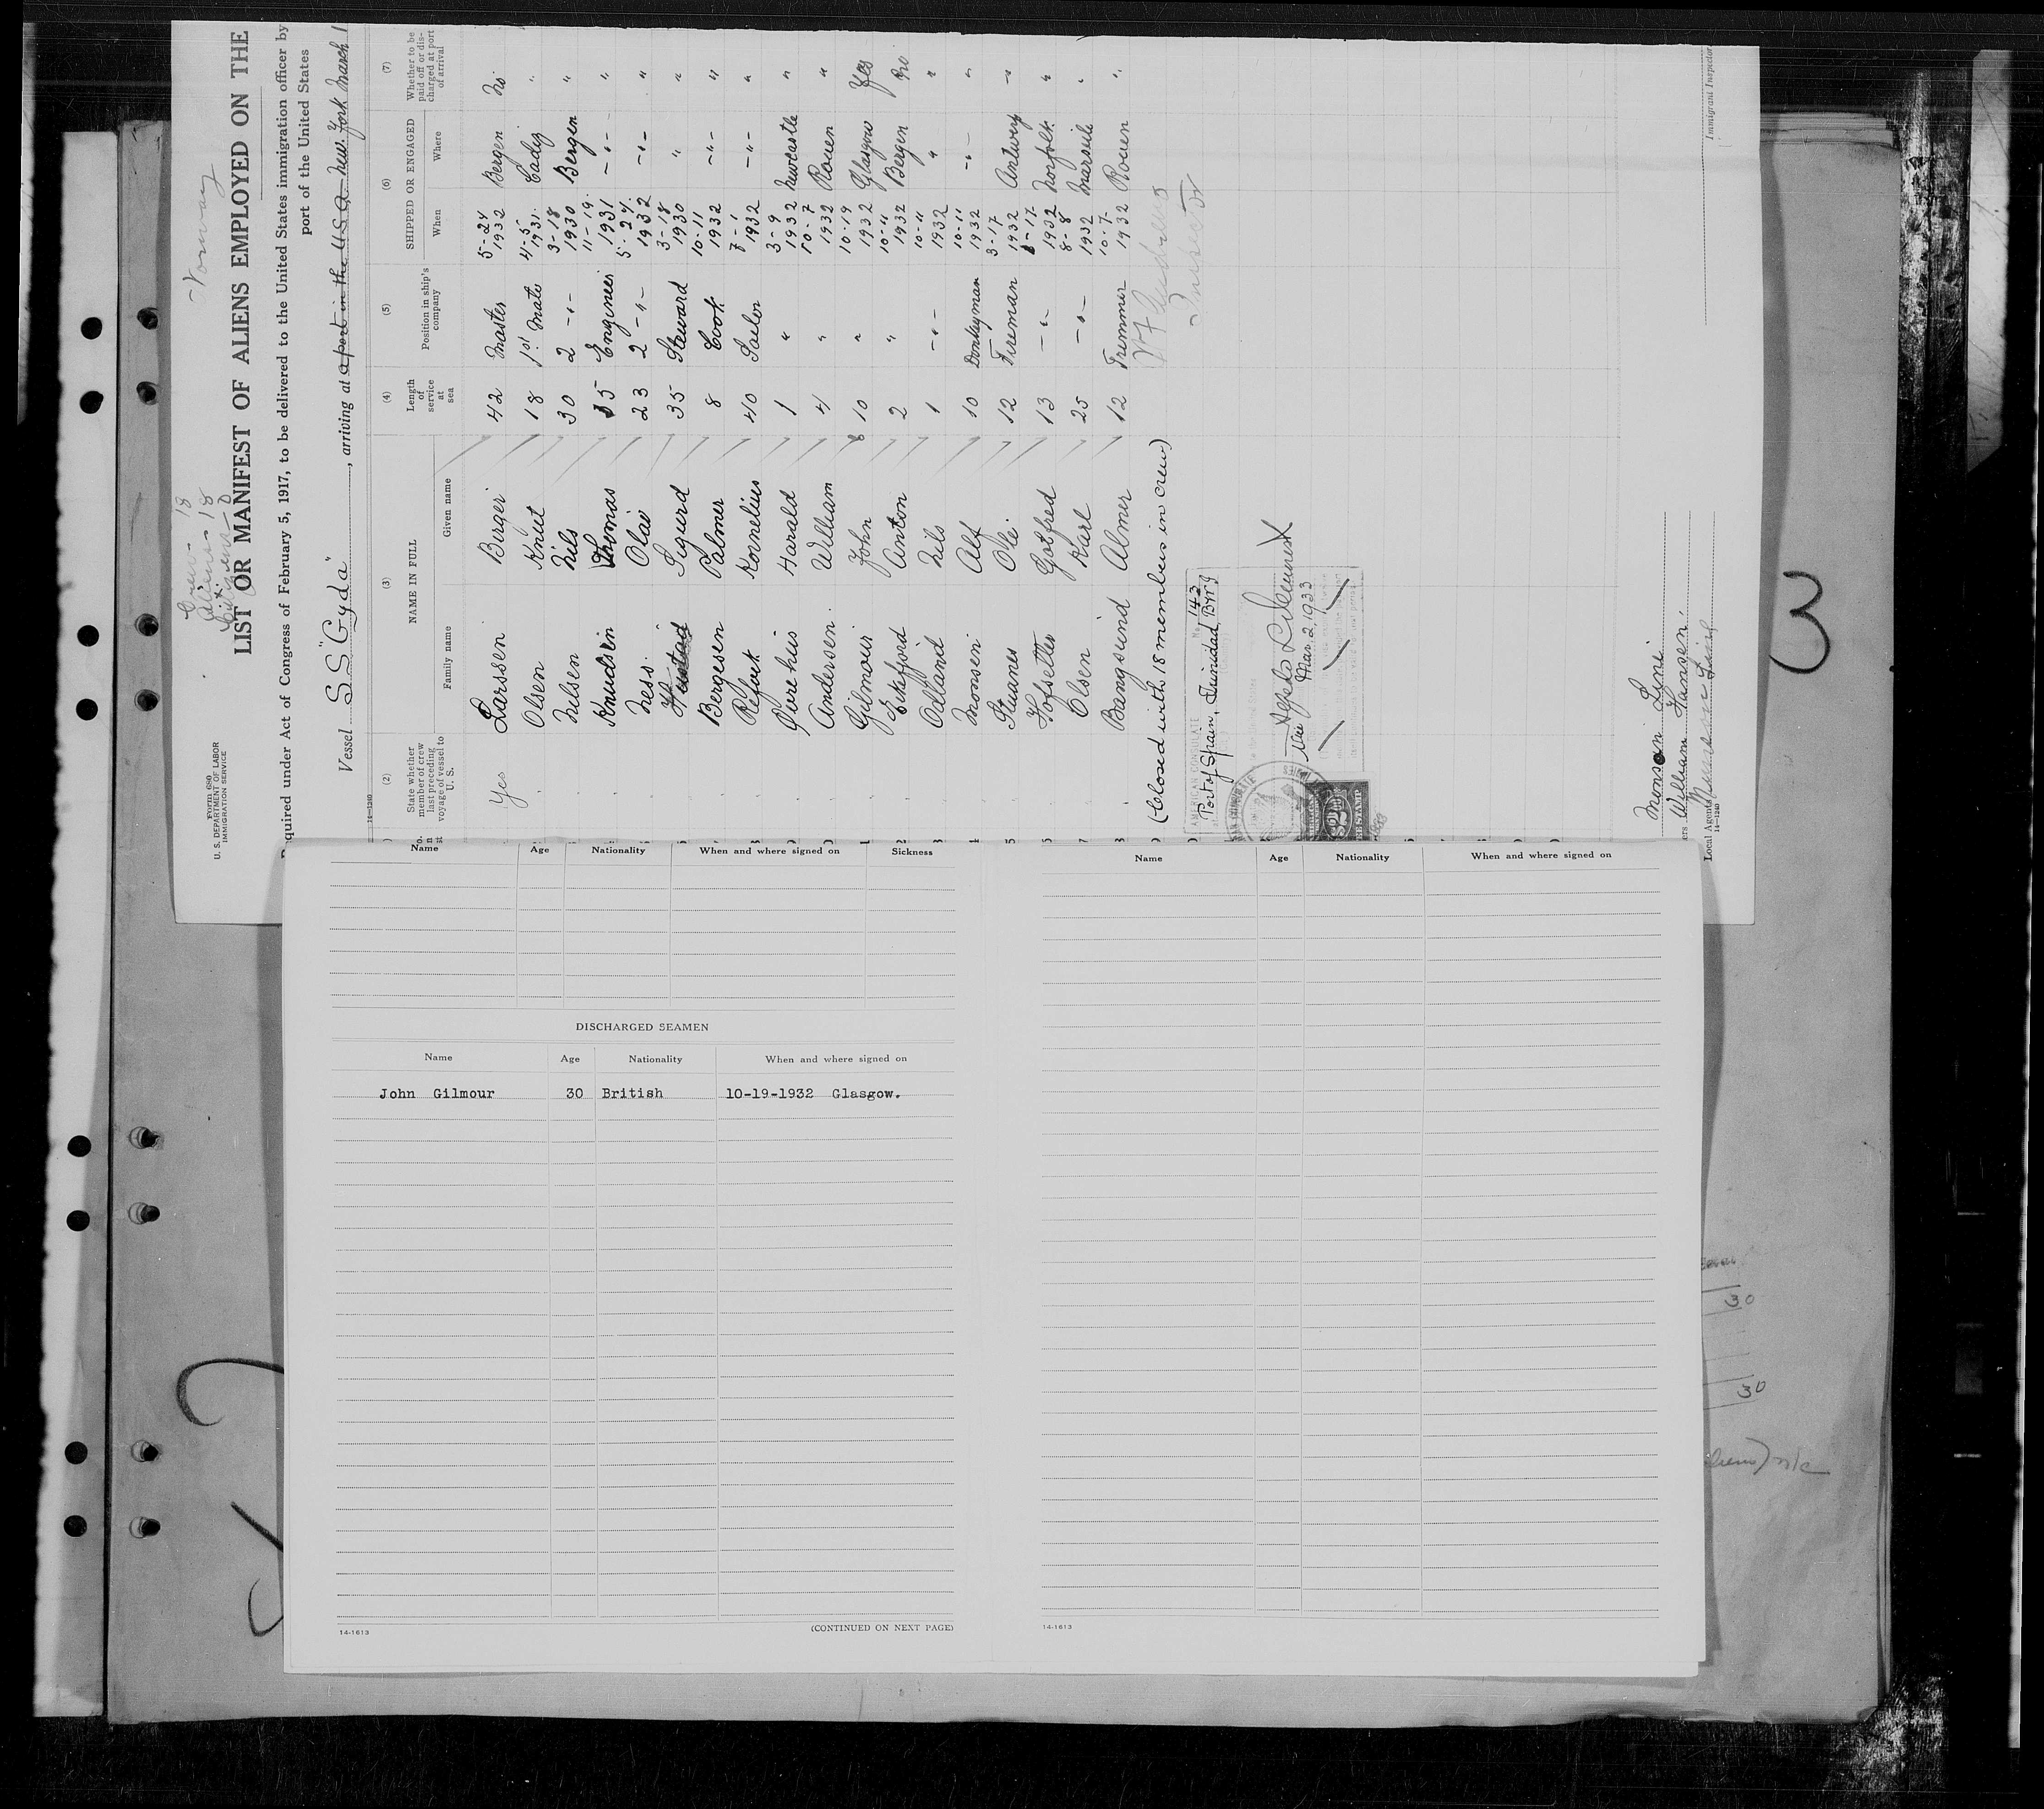 Norway
Crew - 18
Aliens - 18
Citizens - 0
Form 680
U. S. DEPARTMENT OF LABOR
IMMIGRATION SERVICE
LIST OR MANIFEST OF ALIENS EMPLOYED ON THE
quired under Act of Congress of February 5, 1917, to be delivered to the United States immigration officer by
port of the United States
Vessel S.S. "Gyda", arriving at a port in the U.S.A. New York March 1
14-1240
(2) (3) (4) (5) (6) (7)
State whether member of crew last preceding voyage of vessel to U. S.
NAME IN FULL
Family name Given name
Length of service at sea
Position in ship's company
SHIPPED OR ENGAGED
When Where
Whether to be paid off or discharged at port of arrival
Yes Larssen Birger 42 Master 5-24 1932 Bergen No
" Olsen Knut 18 1st Mate 4-5 1931 Cadiz "
" Nilsen Nils 30 2 -"- 3-18 1930 Bergen "
" Knudsen Thomas 35 Engineer 11-19 1931 -"- "
" Ness Olai 23 2 -"- 5-24 1932 -"- "
" Sigurd 35 Steward 3-18 1930 " "
" Bergesen Palmer 8 Cook 10-11 1932 -"- "
" Refork Kornelius 40 Sailor 7-1 1932 -"- "
" Øvrehus Harald 1 " 3-9 1932 Newcastle "
" Andersen William 4 " 10-7 1932 Rouen "
" Gilmour John 10 " 10-19 1932 Glasgow Yes
" Anton 2 " 10-11 1932 Bergen No
" Odland Nils 1 -"- 10-11 1932 " "
" Monsen Alf 10 Donkeyman 10-11 1932 -"- "
" Ole 12 Fireman 3-17 1932 Antwerp "
" Hofsetter Gotfred 13 -"- 1932 Norfolk "
" Olsen Karl 25 -"- 8-8 1932 Marseille "
" Bangsund Almer 12 Trimmer 10-7 1932 Rouen "
(Closed with 18 members in crew)
Inspector
AMERICAN CONSULATE
No. 143
Port of Spain, Trinidad, B.W.I.
Mar. 2, 1933
Monson Line
William Hansen
Local Agents
14-1240
Immigrant Inspector
Name Age Nationality When and where signed on Sickness
DISCHARGED SEAMEN
Name Age Nationality When and where signed on
John Gilmour 30 British 10-19-1932 Glasgow.
14-1613
(CONTINUED ON NEXT PAGE)
Name Age Nationality When and where signed on
14-1613
3
30
30